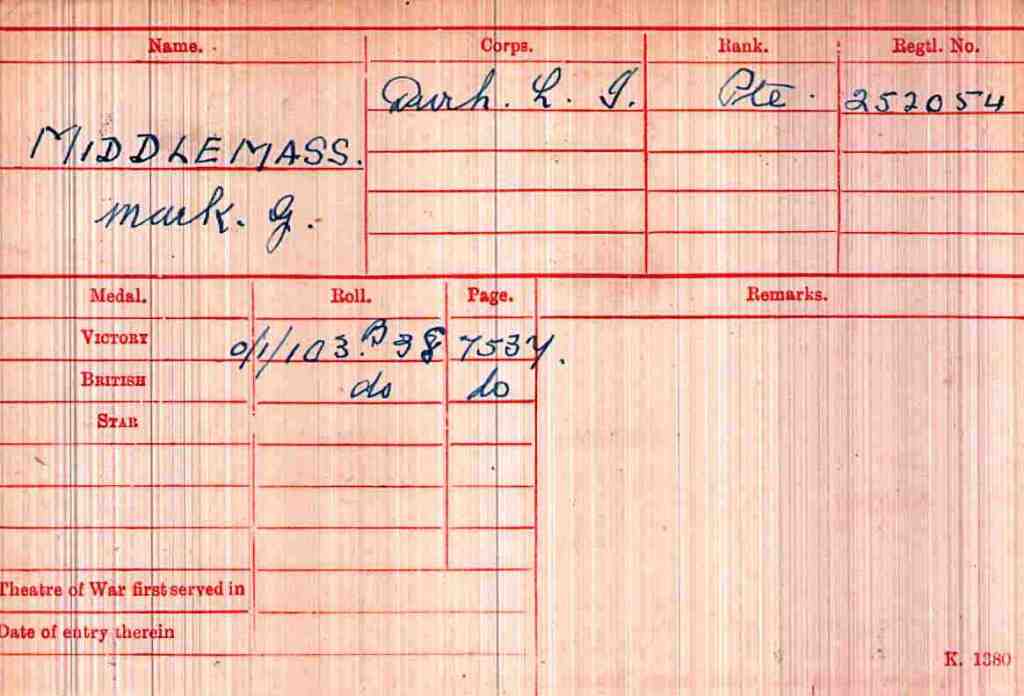 Name. Corps. Rank. Regtl. No.
Durh. L. I. Pte. 252054
MIDDLEMASS.
Mark. G.
Medal. Roll. Page. Remarks.
VICTORY 0/1/103.B38 7537.
BRITISH do do
STAR
Theatre of War first served in
Date of entry therein
K. 1380